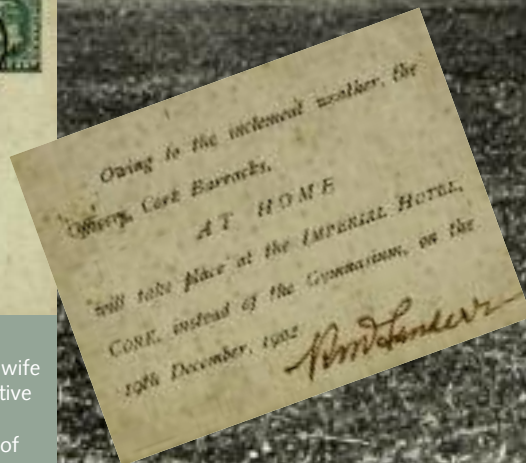 Owing to the inclement weather, the
Officers, Cork Barracks,
AT HOME
will take place at the IMPERIAL HOTEL,
CORK, instead of the Gymnasium, on the
19th December, 1902
wife
tive
of